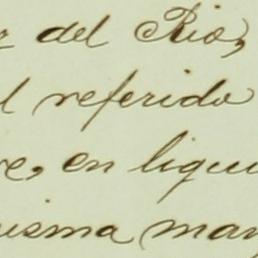 del Rio,
l referido
e, en liqui
misma man